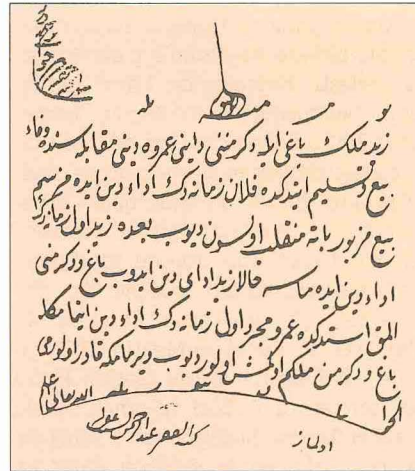 زيد ملك باغی ايله دكرمننی داينی عمروه دينی مقابله سنده وفاء
بيع وتسليم ايتدكده فلان زمانه دك اداء دين ايده مزسم
بيع مزبور باته منقلب اولسون ديوب بعده زيد اول زمانه دك
اداء دين ايده ماسه حالا زيد ادای دين ايدوب باغ ودكرمنی
المق استدكده عمرو مجرد اول زمانه دك اداء دين ايتمامكله
باغ ودكرمن ملكم اولمش اولور ديوب ويرمامكه قادر اولورمی
الجواب الله تعالى اعلم
اولماز
كتبه الفقير عبد الرحمن